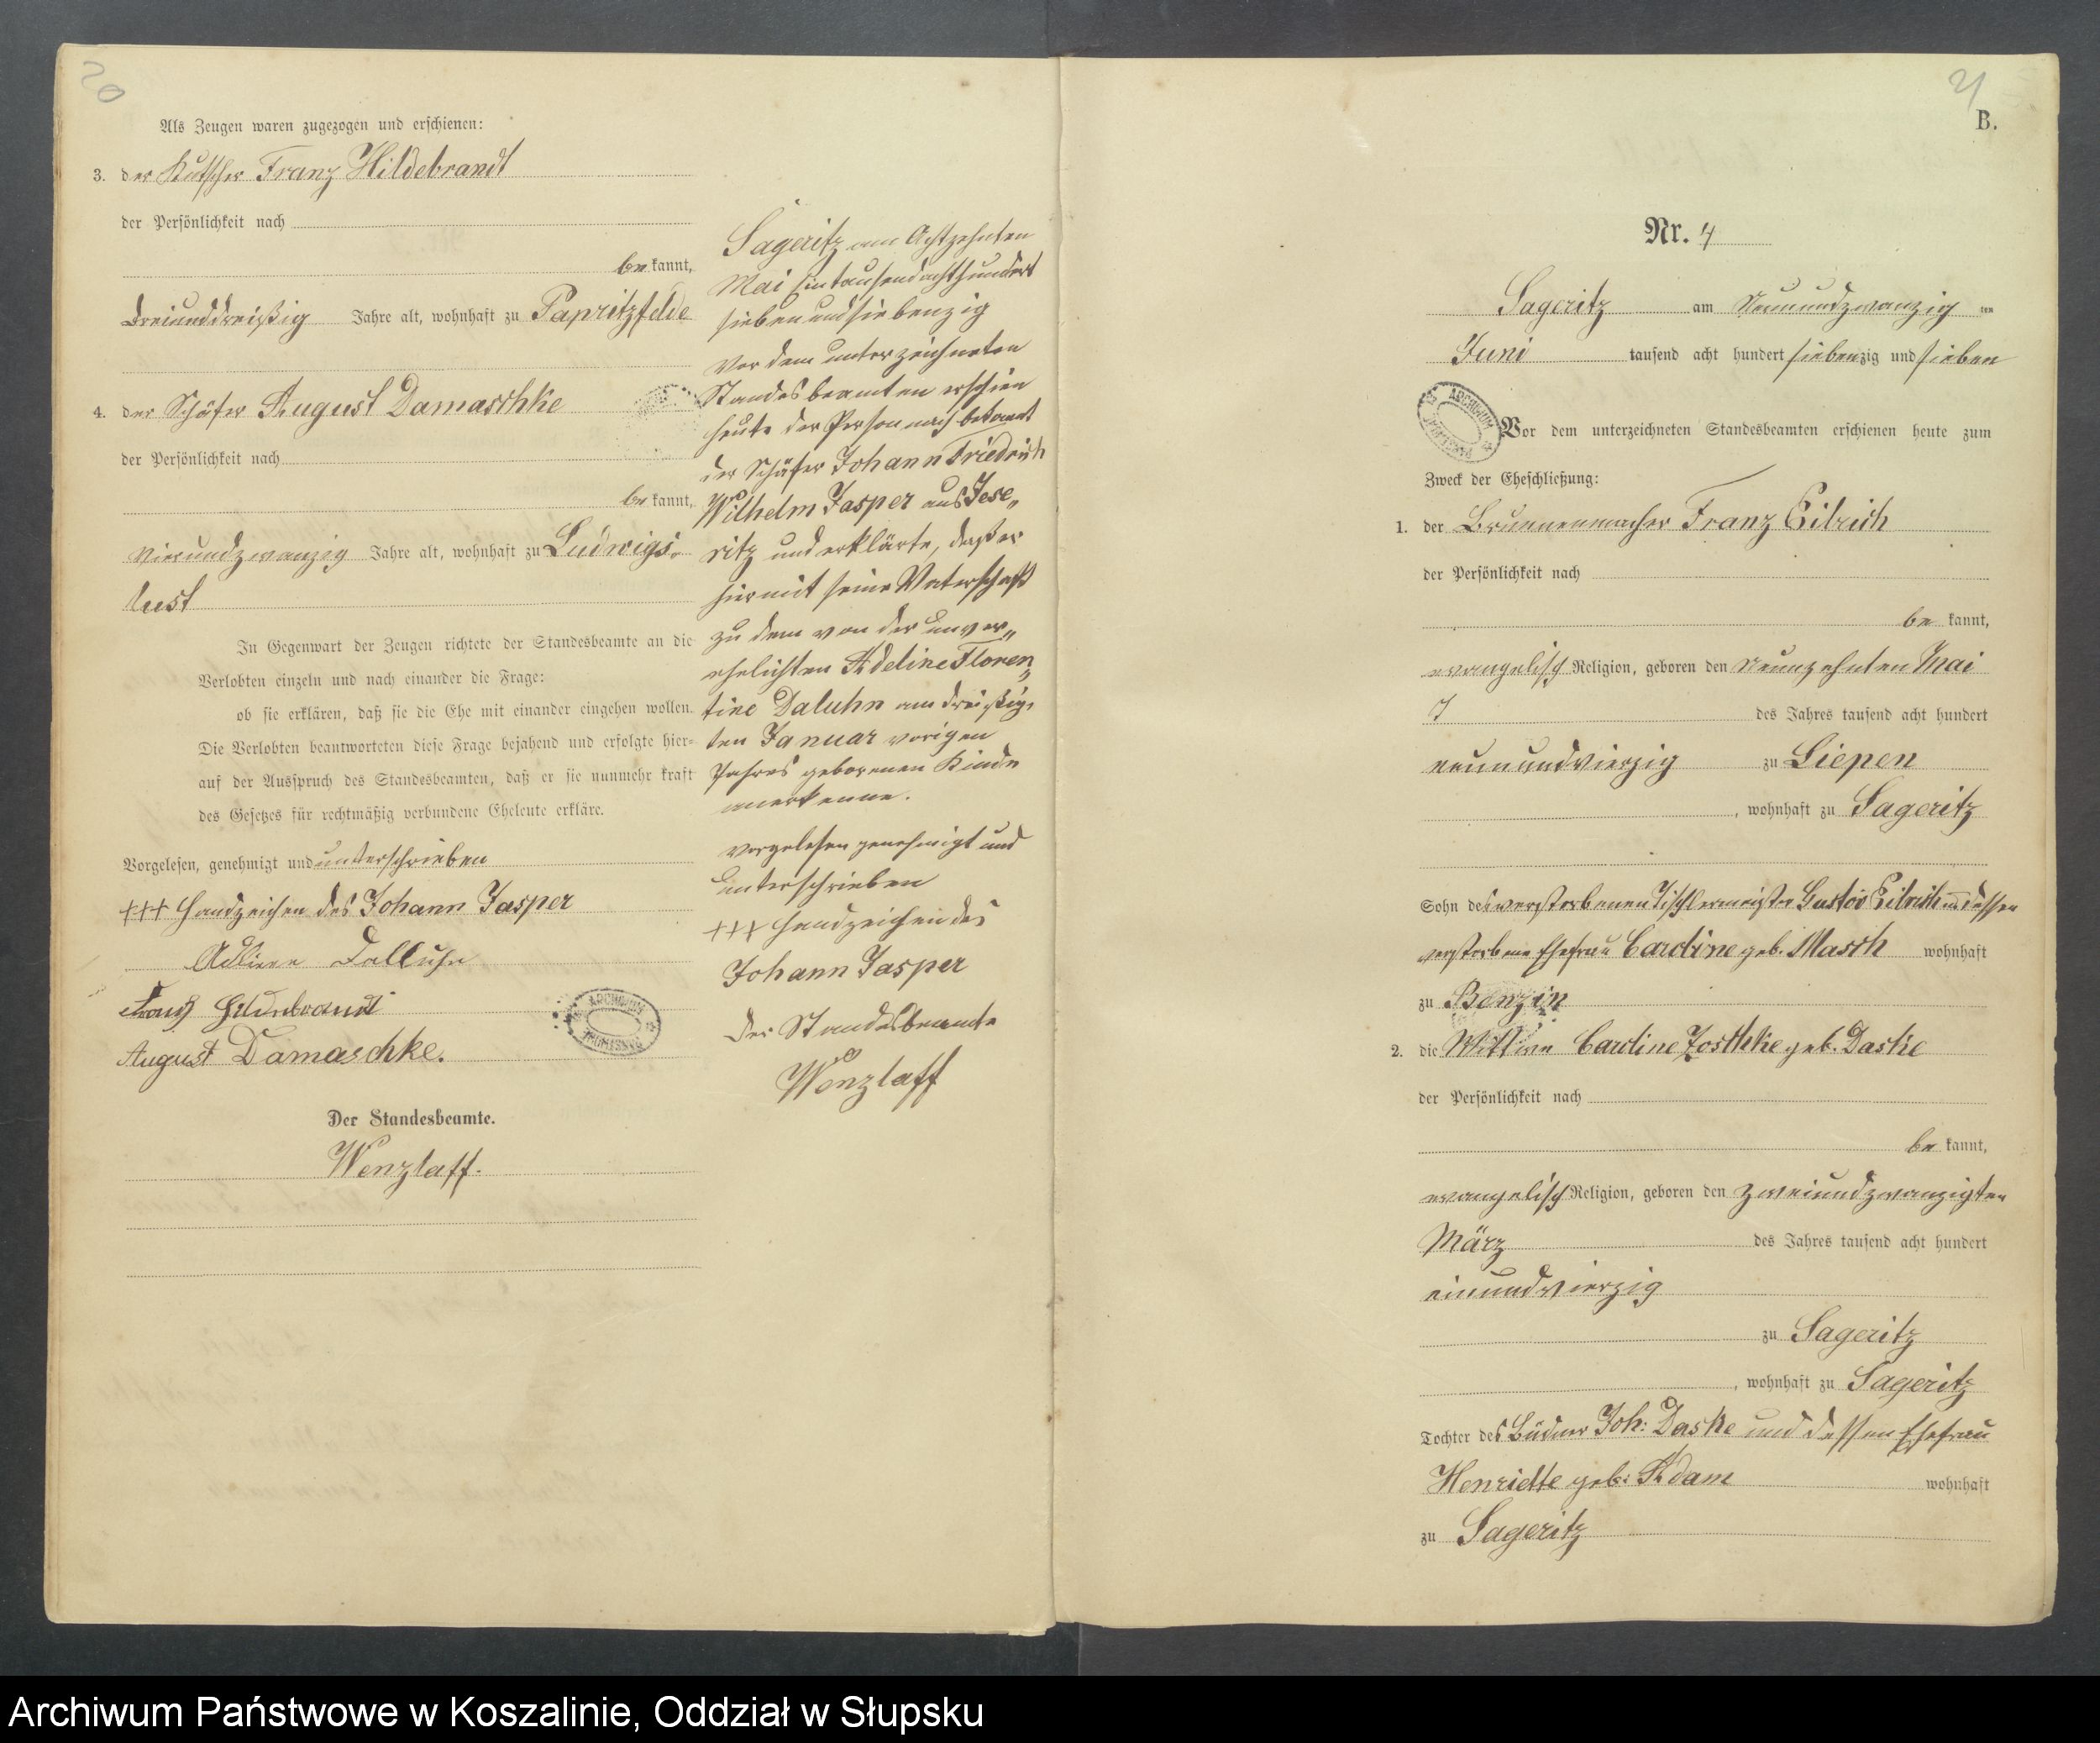 20
Als Zeugen waren zugezogen und erschienen:
3. der Kutscher Franz Hildebrandt
der Persönlichkeit nach
be kannt,
dreiunddreißig Jahre alt, wohnhaft zu Papritzfelde
4. der Schäfer August Damaschke
der Persönlichkeit nach
be kannt,
vierundzwanzig Jahre alt, wohnhaft zu Ludwigs-
lust
In Gegenwart der Zeugen richtete der Standesbeamte an die
Verlobten einzeln und nach einander die Frage:
ob sie erklären, daß sie die Ehe mit einander eingehen wollen.
Die Verlobten beantworteten diese Frage bejahend und erfolgte hier-
auf der Ausspruch des Standesbeamten, daß er sie nunmehr kraft
des Gesetzes für rechtmäßig verbundene Eheleute erkläre.
Vorgelesen, genehmigt und unterschrieben
+++ Handzeichen des Johann Jasper
Dalluhn
Franz Hildebrandt
August Damaschke.
Der Standesbeamte.
Wenzlaff.
Sageritz am Achtzehnten
Mai Eintausendachthundert
siebenundsiebenzig
Vor dem unterzeichneten
Standesbeamten erschien
heute der Person nach bekannt
der Schäfer Johann Friedrich
Wilhelm Jasper aus Jese„
ritz und erklärte, daß er
hiermit seine Vaterschaft
zu dem von der unver„
ehelichten Adeline Floren„
tine Daluhn am dreißig„
ten Januar vorigen
Jahres geborenen Kinde
anerkenne.
Vorgelesen genehmigt und
unterschrieben
+++ Handzeichen des
Johann Jasper
Der Standesbeamte
Wenzlaff
21
B.
Nr. 4
Sageritz am Neunundzwanzig ten
Juni tausend acht hundert siebenzig und sieben
Vor dem unterzeichneten Standesbeamten erschienen heute zum
Zweck der Eheschließung:
1. der Brunnenmacher Franz Eilrich
der Persönlichkeit nach
be kannt,
evangelisch Religion, geboren den Neunzehnten Mai
des Jahres tausend acht hundert
neunundvierzig zu Liepen
, wohnhaft zu Sageritz
Sohn des verstorbenen Tischlermeister Gustav Eilrich u. dessen
verstorbene Ehefrau Caroline geb. Masch wohnhaft
zu Benzin
2. die Wittwe Caroline Joschke geb. Daske
der Persönlichkeit nach
be kannt,
evangelisch Religion, geboren den zweiundzwanzigten
März des Jahres tausend acht hundert
einundvierzig
zu Sageritz
, wohnhaft zu Sageritz
Tochter des Büdner Joh: Daske und dessen Ehefrau
Henriette geb: Adam wohnhaft
zu Sageritz
Archiwum Państwowe w Koszalinie, Oddział w Słupsku